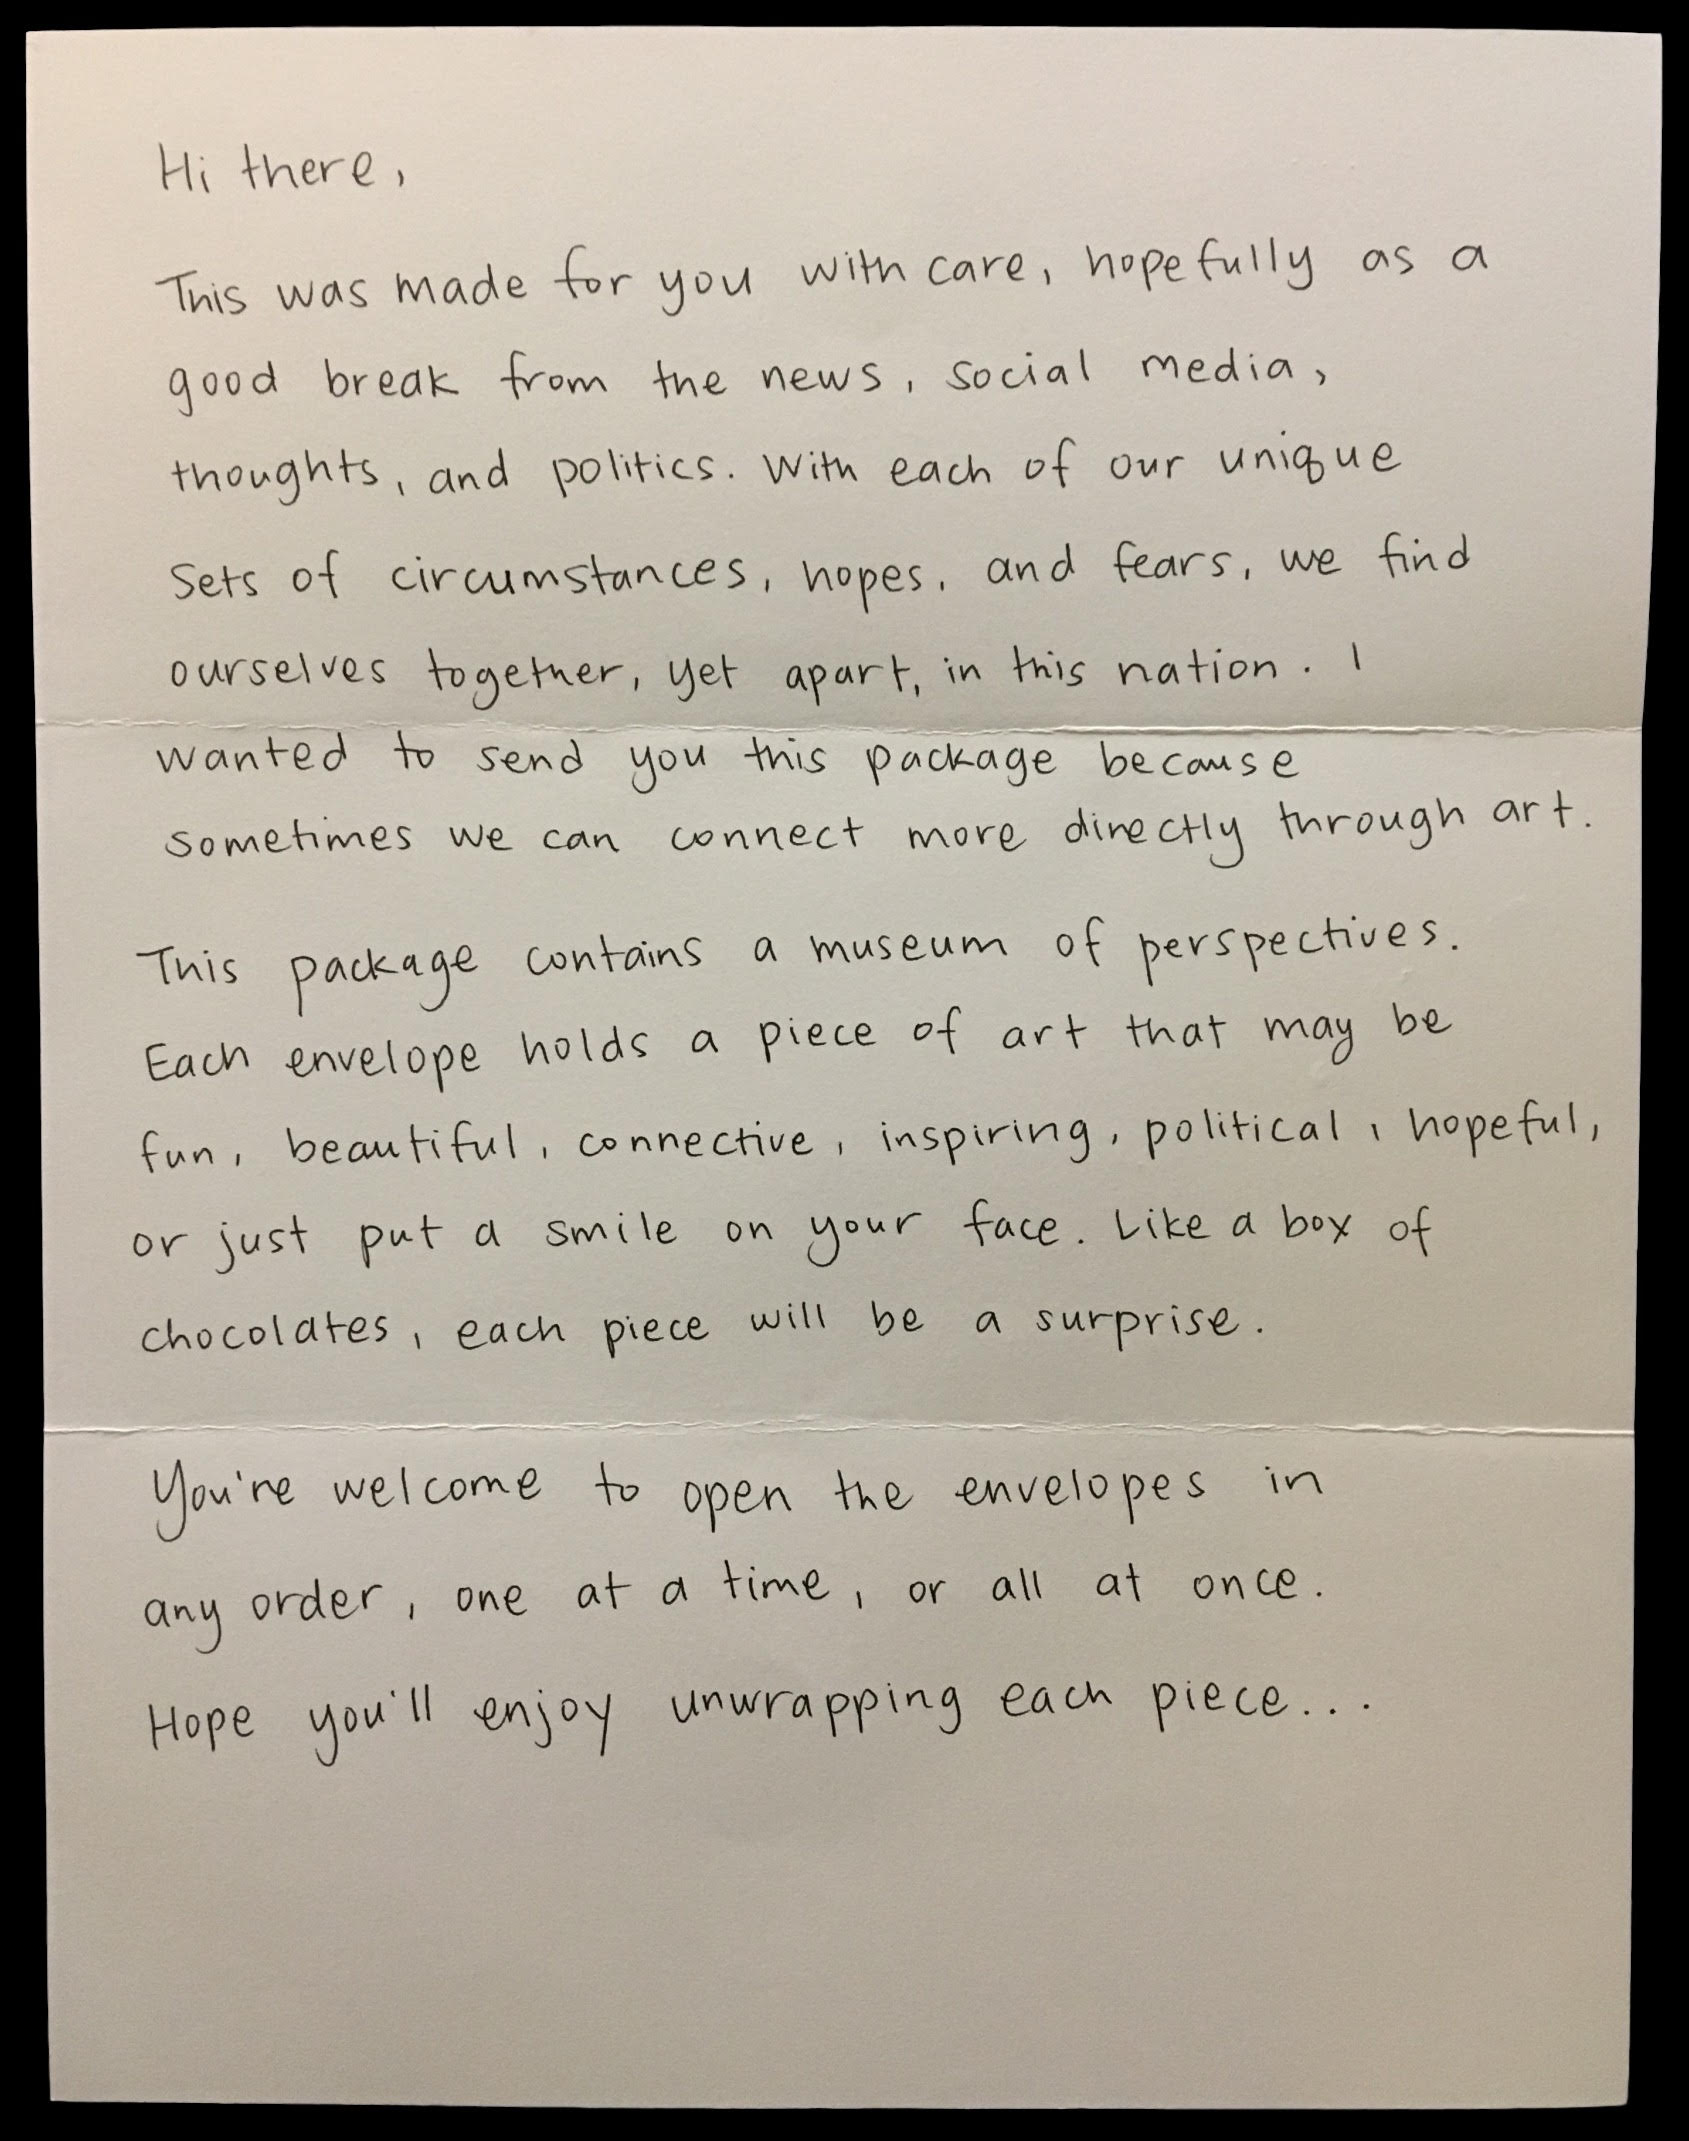 Hi there,
This was made for you with care, hopefully as a
good break from the news, social media,
thoughts, and politics. With each of our unique
sets of circumstances, hopes, and fears, we find
ourselves together, yet apart, in this nation. I
wanted to send you this package because
sometimes we can connect more directly through art.
This package contains a museum of perspectives.
Each envelope holds a piece of art that may be
fun, beautiful, connective, inspiring, political, hopeful,
or just put a smile on your face. Like a box of
chocolates, each piece will be a surprise.
You're welcome to open the envelopes in
any order, one at a time, or all at once.
Hope you'll enjoy unwrapping each piece...